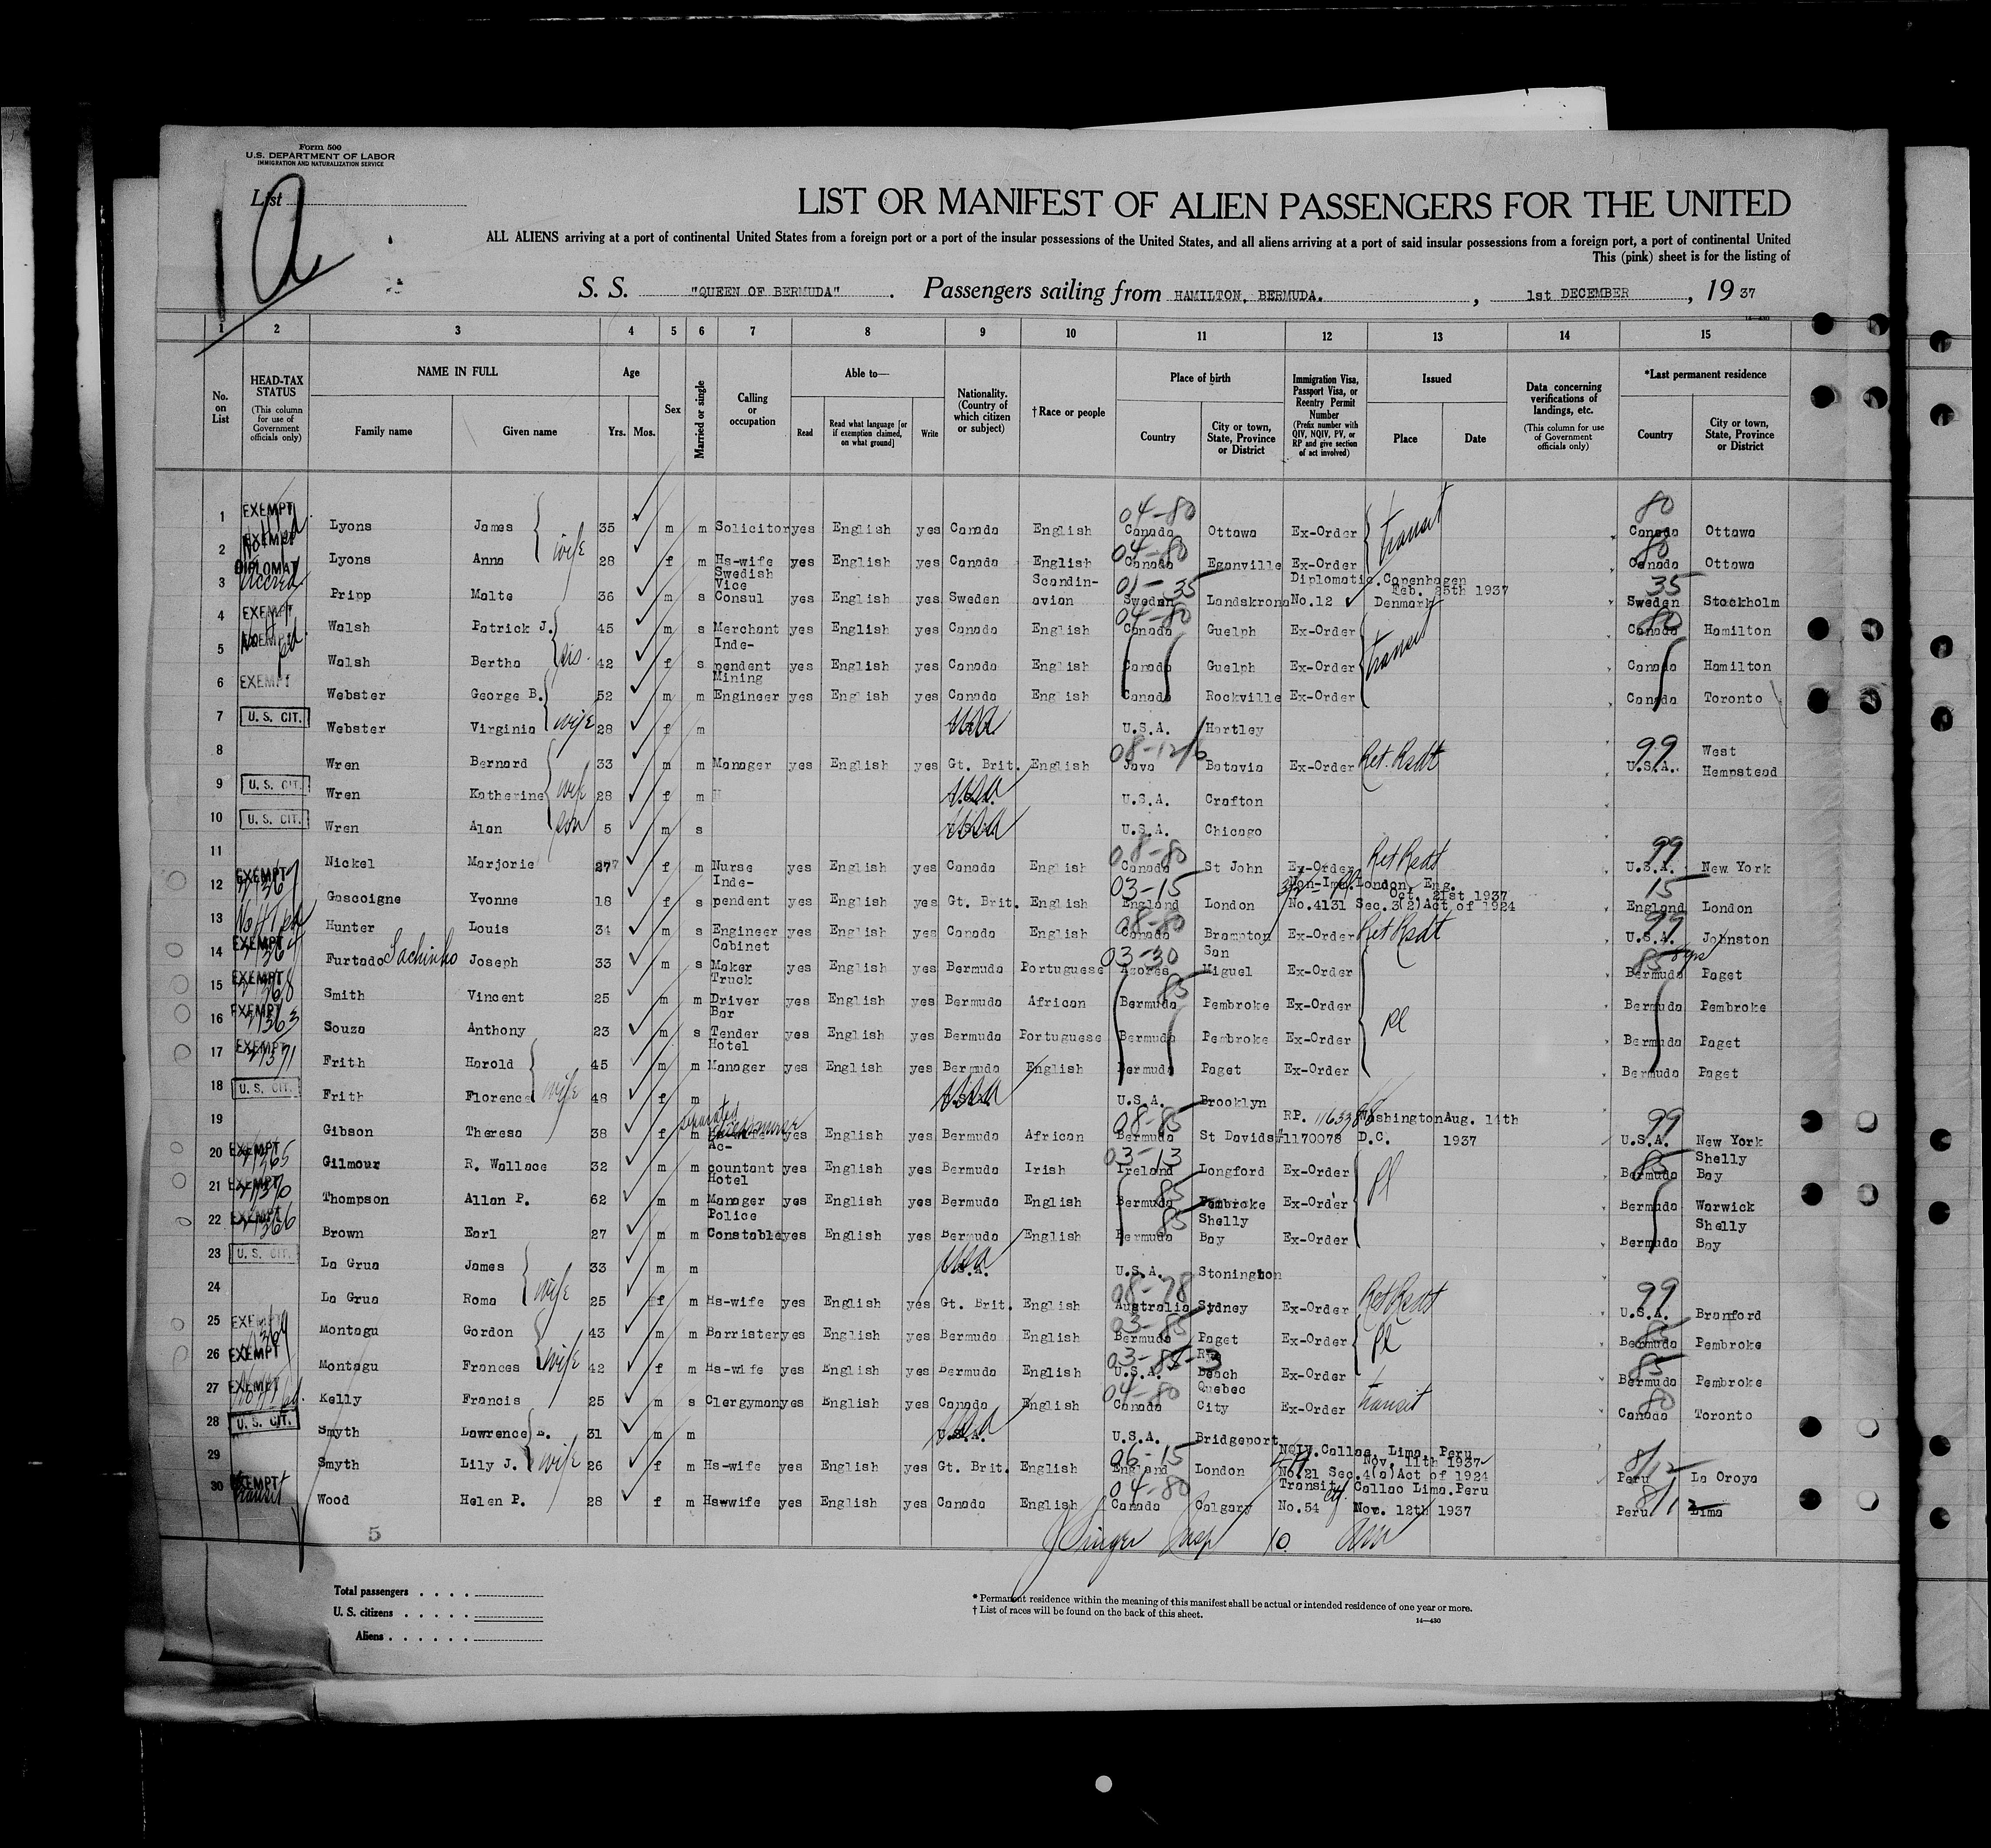 Form 500
U.S. DEPARTMENT OF LABOR
IMMIGRATION AND NATURALIZATION SERVICE
List
LIST OR MANIFEST OF ALIEN PASSENGERS FOR THE UNITED
ALL ALIENS arriving at a port of continental United States from a foreign port or a port of the insular possessions of the United States, and all aliens arriving at a port of said insular possessions from a foreign port, a port of continental United
This (pink) sheet is for the listing of
S. S. "QUEEN OF BERMUDA" . Passengers sailing from HAMILTON, BERMUDA. , 1st DECEMBER , 19 37
14—430
1 2 3 4 5 6 7 8 9 10 11 12 13 14 15
No. on List
HEAD-TAX STATUS (This column for use of Government officials only)
NAME IN FULL
Family name Given name
Age
Yrs. Mos.
Sex
Married or single
Calling or occupation
Able to—
Read Read what language [or if exemption claimed, on what ground] Write
Nationality. (Country of which citizen or subject)
† Race or people
Place of birth
Country City or town, State, Province or District
Immigration Visa, Passport Visa, or Reentry Permit Number (Prefix number with QIV, NQIV, PV, or RP and give section of act involved)
Issued
Place Date
Data concerning verifications of landings, etc. (This column for use of Government officials only)
*Last permanent residence
Country City or town, State, Province or District
1 EXEMPT Lyons James 35 m m Solicitor yes English yes Canada English 04-80 Canada Ottawa Ex-Order transit 80 Canada Ottawa
2 EXEMPT Lyons Anna wife 28 f m Hs-wife yes English yes Canada English 04-80 Canada Eganville Ex-Order 80 Canada Ottawa
3 DIPLOMAT Accred Pripp Malte 36 m s Swedish Vice Consul yes English yes Sweden Scandin-avian 01-35 Sweden Landskrona Diplomatic. No.12 Copenhagen Denmark Feb. 25th 1937 35 Sweden Stockholm
4 EXEMPT Walsh Patrick J. 45 m s Merchant yes English yes Canada English 04-80 Canada Guelph Ex-Order transit 80 Canada Hamilton
5 EXEMPT Walsh Bertha sis. 42 f s Inde-pendent yes English yes Canada English Canada Guelph Ex-Order Canada Hamilton
6 EXEMPT Webster George B. 52 m m Mining Engineer yes English yes Canada English Canada Rockville Ex-Order Canada Toronto
7 U. S. CIT. Webster Virginia wife 28 f m USA U.S.A. Hartley
8 Wren Bernard 33 m m Manager yes English yes Gt. Brit. English Java Batavia Ex-Order Ret. Resdt 99 U.S.A. West Hempstead
9 U. S. CIT. Wren Katherine wife 28 f m USA U.S.A. Crafton
10 U. S. CIT. Wren Alan son 5 m s USA U.S.A. Chicago
11 Nickel Marjorie 27 f m Nurse yes English yes Canada English 08-80 Canada St John Ex-Order Ret Resdt 99 U.S.A. New York
12 EXEMPT Gascoigne Yvonne 18 f s Inde-pendent yes English yes Gt. Brit. English 03-15 England London Non-Imm. No.4131 London, Eng. Oct. 21st 1937 Sec.3(2)Act of 1924 15 England London
13 Hunter Louis 34 m s Engineer yes English yes Canada English 08-80 Canada Brampton Ex-Order Ret Resdt 99 U.S.A. Johnston
14 EXEMPT Furtado Sachinho Joseph 33 m s Cabinet Maker yes English yes Bermuda Portuguese 03-30 Azores San Miguel Ex-Order 85 Bermuda Paget
15 EXEMPT Smith Vincent 25 m m Truck Driver yes English yes Bermuda African 85 Bermuda Pembroke Ex-Order Bermuda Pembroke
16 EXEMPT Souza Anthony 23 m s Bar Tender yes English yes Bermuda Portuguese Bermuda Pembroke Ex-Order Pl Bermuda Paget
17 EXEMPT Frith Harold 45 m m Hotel Manager yes English yes Bermuda English Bermuda Paget Ex-Order Bermuda Paget
18 U. S. CIT. Frith Florence wife 48 f m USA U.S.A. Brooklyn
19 Gibson Theresa 38 f m separated yes English yes Bermuda African 08-85 Bermuda St Davids RP. #1170078 Washington D.C. Aug. 14th 1937 99 U.S.A. New York
20 EXEMPT Gilmour R. Wallace 32 m m Ac-countant yes English yes Bermuda Irish 03-13 Ireland Longford Ex-Order Pl 85 Bermuda Shelly Bay
21 EXEMPT Thompson Allan P. 62 m m Hotel Manager yes English yes Bermuda English 85 Bermuda Pembroke Ex-Order Bermuda Warwick
22 EXEMPT Brown Earl 27 m m Police Constable yes English yes Bermuda English 85 Bermuda Shelly Bay Ex-Order Bermuda Shelly Bay
23 U. S. CIT. La Grua James 33 m m U.S.A. U.S.A. Stonington
24 La Grua Roma wife 25 f m Hs-wife yes English yes Gt. Brit. English 08-78 Australia Sydney Ex-Order Ret Resdt 99 U.S.A. Branford
25 EXEMPT Montagu Gordon 43 m m Barrister yes English yes Bermuda English 03-85 Bermuda Paget Ex-Order Pl 85 Bermuda Pembroke
26 EXEMPT Montagu Frances wife 42 f m Hs-wife yes English yes Bermuda English U.S.A. Beach Ex-Order 85 Bermuda Pembroke
27 EXEMPT Kelly Francis 25 m s Clergyman yes English yes Canada English 04-80 Canada Quebec City Ex-Order transit 80 Canada Toronto
28 U. S. CIT. Smyth Lawrence B. 31 m m U.S.A. U.S.A. Bridgeport
29 Smyth Lily J. wife 26 f m Hs-wife yes English yes Gt. Brit. English 06-15 England London NQIV. No.21 Callao, Lima, Peru Nov. 11th 1937 Sec.4(a)Act of 1924 Peru La Oroya
30 EXEMPT transit Wood Helen P. 28 f m Hs-wife yes English yes Canada English 04-80 Canada Calgary Transit No.54 Callao Lima.Peru Nov. 12th 1937 Peru Lima
5
Total passengers . . . .
U. S. citizens . . . . .
Aliens . . . . . .
* Permanent residence within the meaning of this manifest shall be actual or intended residence of one year or more.
† List of races will be found on the back of this sheet.
14—430